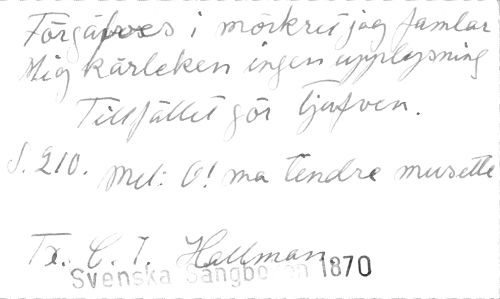 Förgäfves i mörkret jag famlar
Mig kärleken ingen upplysning
Tillfället gör Tjufven.
S. 210. Mel: O! ma tendre musette
Tx. C. I. Hallman
Svenska Sångboken 1870